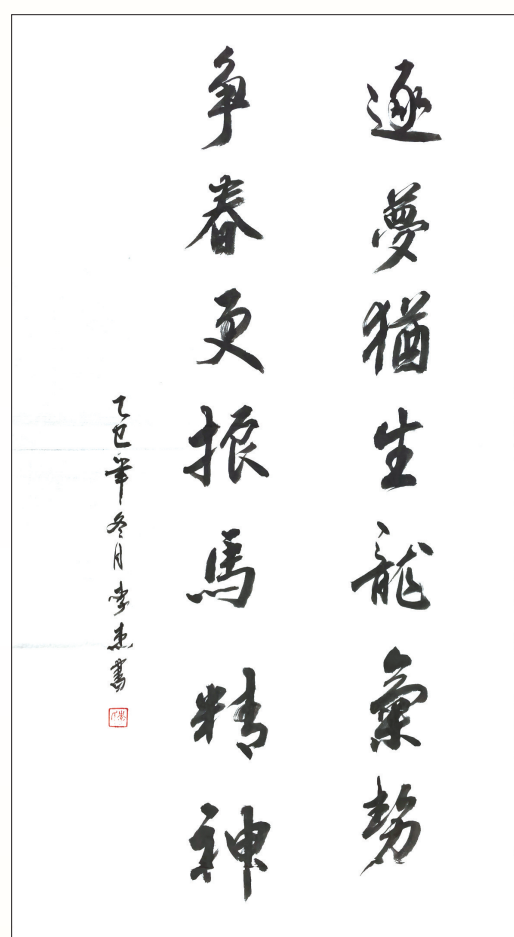 逐夢猶生龍氣勢
争春更振馬精神
乙巳年冬月李杰書